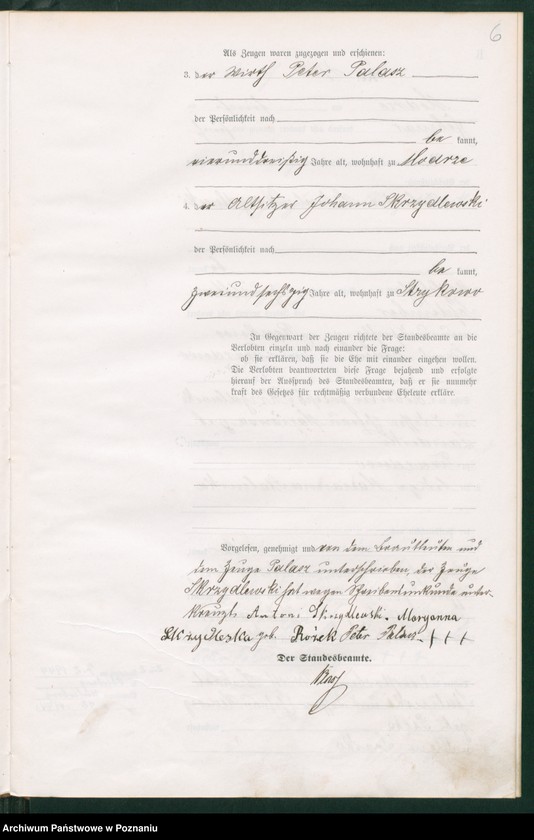 6
Als Zeugen waren zugezogen und erschienen:
3. der Wirth Peter Palasz
der Persönlichkeit nach
be kannt,
vierunddreißig Jahre alt, wohnhaft zu Modrze
4. der Altsitzer Johann Skrzydlewski
der Persönlichkeit nach
be kannt,
zweiundsechzig Jahre alt, wohnhaft zu Strykowo
In Gegenwart der Zeugen richtete der Standesbeamte an die
Verlobten einzeln und nach einander die Frage:
ob sie erklären, daß sie die Ehe mit einander eingehen wollen.
Die Verlobten beantworteten diese Frage bejahend und erfolgte
hierauf der Ausspruch des Standesbeamten, daß er sie nunmehr
kraft des Gesetzes für rechtmäßig verbundene Eheleute erkläre.
Vorgelesen, genehmigt und von den Brautleuten und
dem Zeuge Palasz unterschrieben, der Zeuge
Skrzydlewski hat wegen Schreibensunkunde unter-
kreuzt. Antoni Skrzydlewski. Maryanna
Skrzydleska geb. Rożek Peter Palasz +++
Der Standesbeamte.
Archiwum Państwowe w Poznaniu